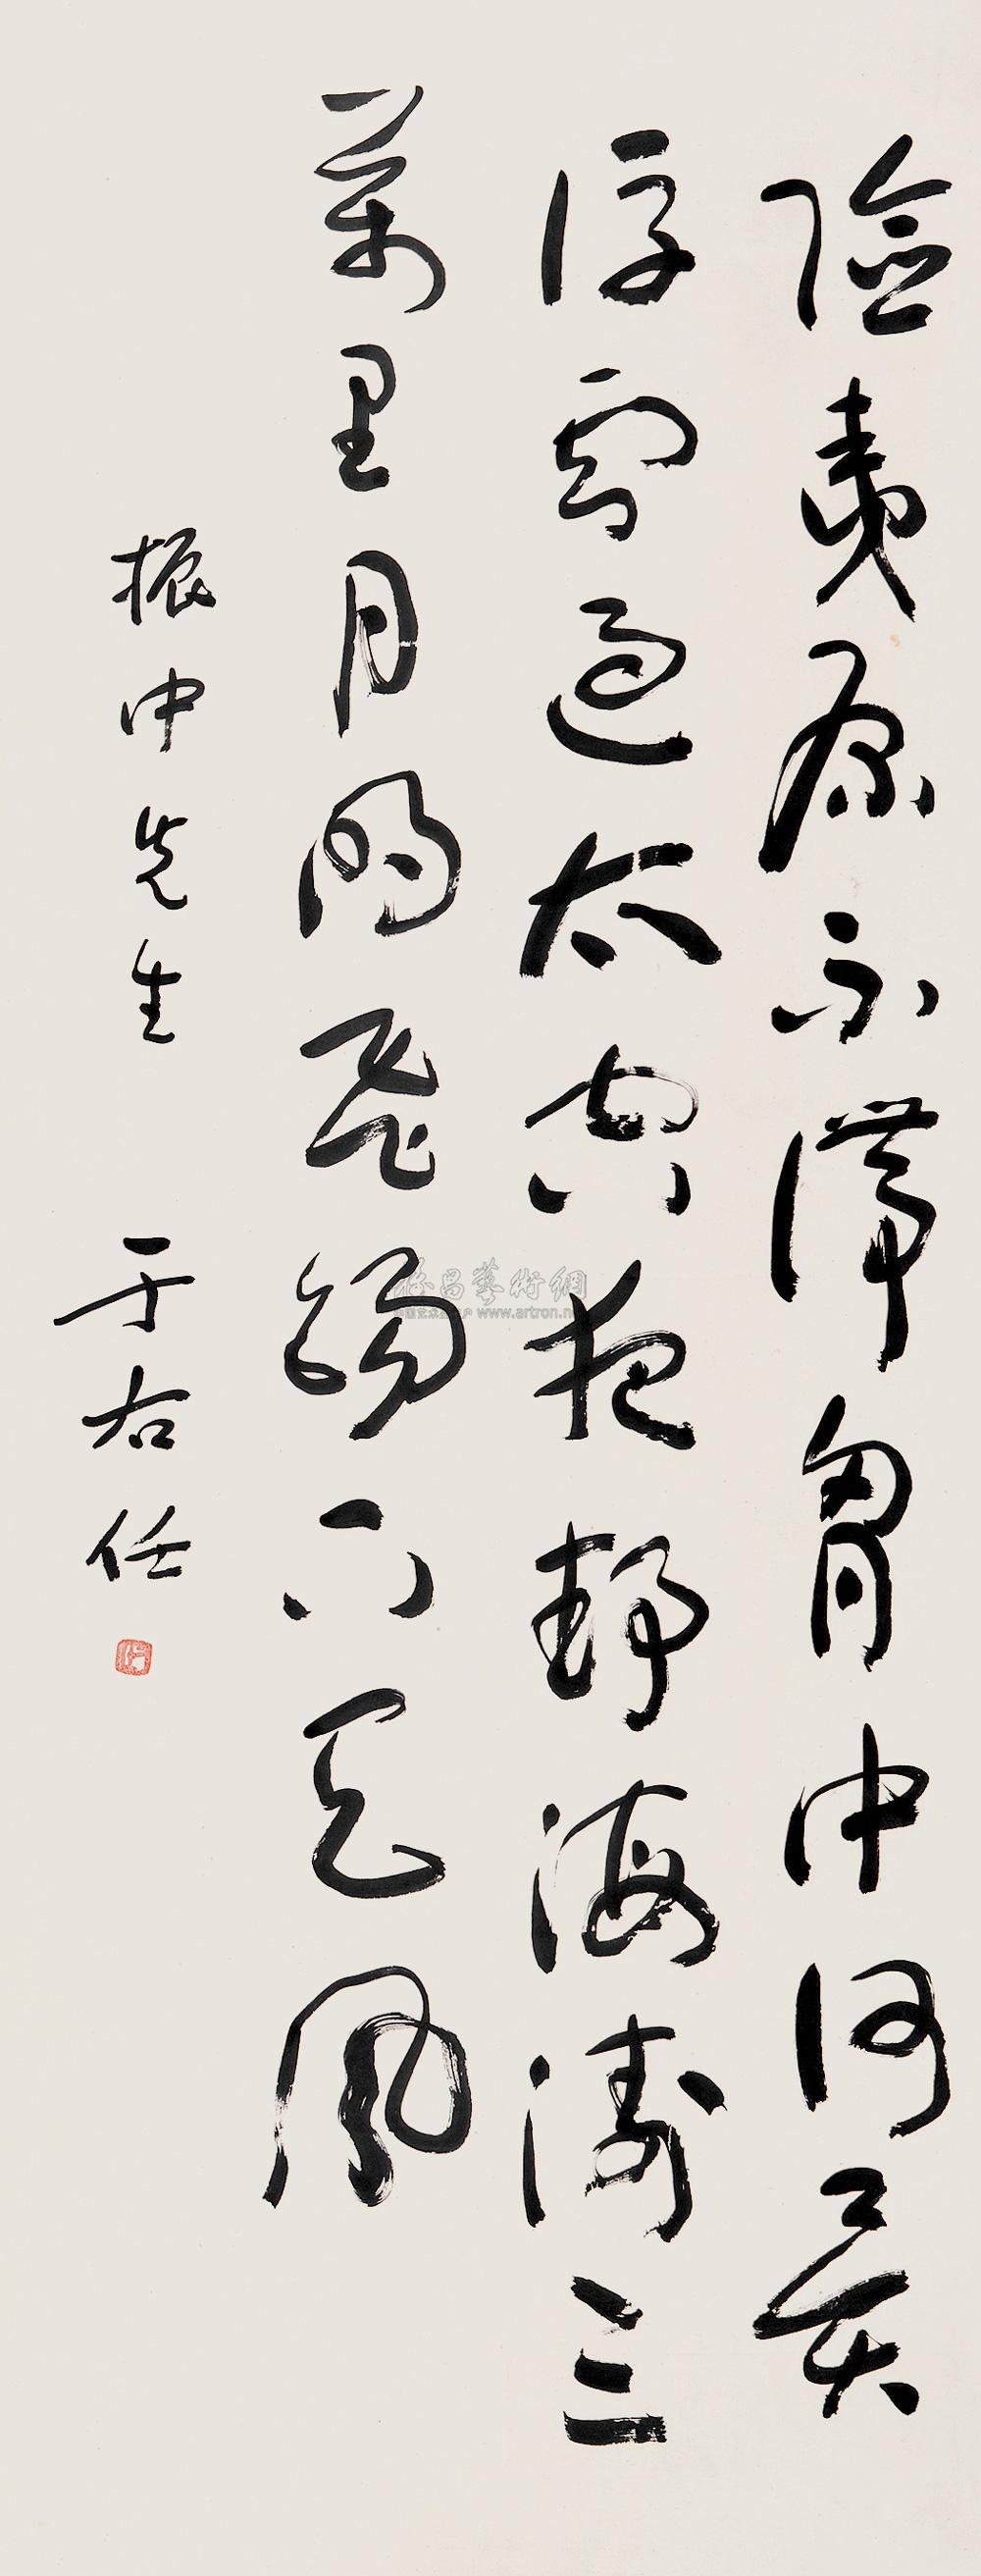 險夷原不滯胷中何異
浮雲過太空夜靜海濤三
萬里月明飛錫下天風
振中先生 于右任
雅昌藝術網
www.artron.net